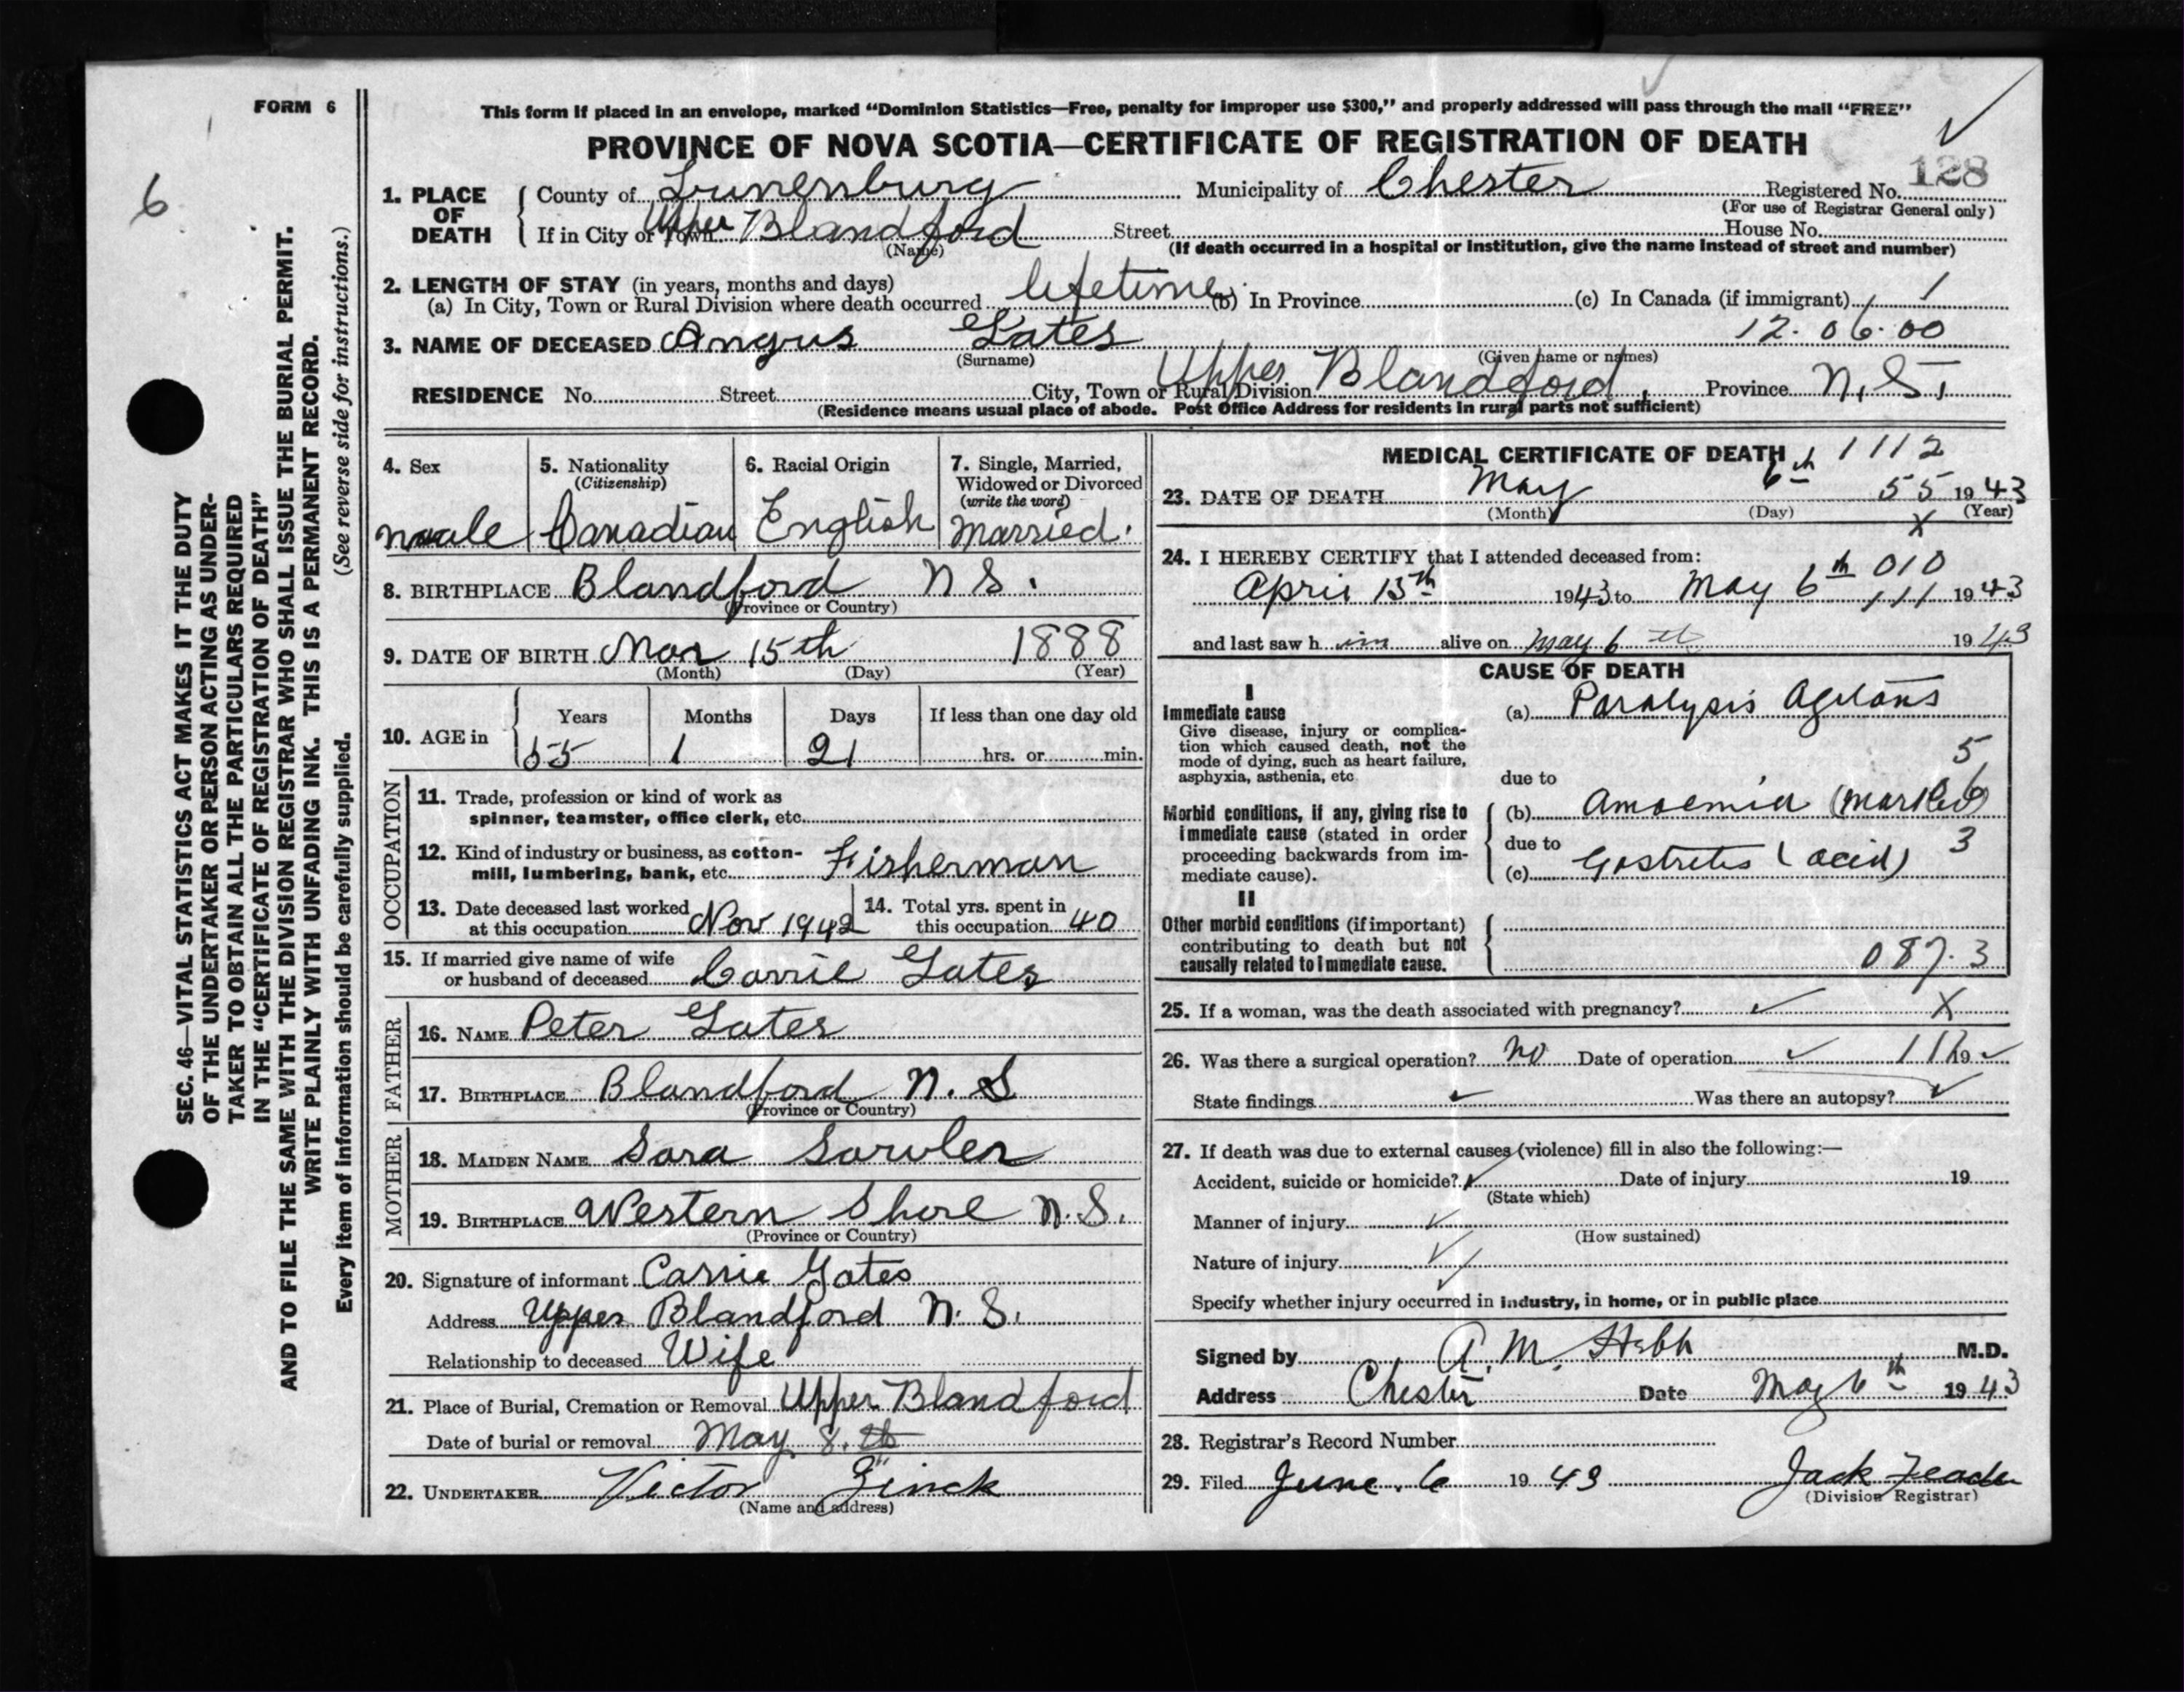 FORM 6
This form if placed in an envelope, marked “Dominion Statistics—Free, penalty for improper use $300,” and properly addressed will pass through the mail “FREE”
PROVINCE OF NOVA SCOTIA—CERTIFICATE OF REGISTRATION OF DEATH
128
6
SEC. 46—VITAL STATISTICS ACT MAKES IT THE DUTY
OF THE UNDERTAKER OR PERSON ACTING AS UNDER-
TAKER TO OBTAIN ALL THE PARTICULARS REQUIRED
IN THE “CERTIFICATE OF REGISTRATION OF DEATH”
AND TO FILE THE SAME WITH THE DIVISION REGISTRAR WHO SHALL ISSUE THE BURIAL PERMIT.
WRITE PLAINLY WITH UNFADING INK. THIS IS A PERMANENT RECORD.
Every item of information should be carefully supplied. (See reverse side for instructions.)
1. PLACE OF DEATH
County of Lunenburg Municipality of Chester Registered No.
(For use of Registrar General only)
If in City or Town Upper Blandford Street House No.
(Name) (If death occurred in a hospital or institution, give the name instead of street and number)
2. LENGTH OF STAY (in years, months and days)
(a) In City, Town or Rural Division where death occurred lifetime (b) In Province (c) In Canada (if immigrant) 1
12.06.00
3. NAME OF DECEASED Angus Gates
(Surname) (Given name or names)
RESIDENCE No. Street City, Town or Rural Division Upper Blandford, Province N.S.
(Residence means usual place of abode. Post Office Address for residents in rural parts not sufficient)
4. Sex 5. Nationality 6. Racial Origin 7. Single, Married,
(Citizenship) Widowed or Divorced
(write the word)
male Canadian English Married.
8. BIRTHPLACE Blandford N S.
(Province or Country)
9. DATE OF BIRTH Mar 15th 1888
(Month) (Day) (Year)
Years Months Days If less than one day old
10. AGE in 55 1 21 hrs. or min.
OCCUPATION
11. Trade, profession or kind of work as
spinner, teamster, office clerk, etc.
12. Kind of industry or business, as cotton-
mill, lumbering, bank, etc. Fisherman
13. Date deceased last worked at this occupation Nov 1942
14. Total yrs. spent in this occupation 40
15. If married give name of wife
or husband of deceased Carrie Gates
FATHER
16. NAME Peter Gates
17. BIRTHPLACE Blandford N. S
(Province or Country)
MOTHER
18. MAIDEN NAME Sara
19. BIRTHPLACE Western Shore N.S.
(Province or Country)
20. Signature of informant Carrie Gates
Address Upper Blandford N. S.
Relationship to deceased Wife
21. Place of Burial, Cremation or Removal Upper Blandford
Date of burial or removal May 8.th
22. UNDERTAKER Victor Zinck
(Name and address)
MEDICAL CERTIFICATE OF DEATH 1112
23. DATE OF DEATH May 6th 55 1943
(Month) (Day) (Year)
X
24. I HEREBY CERTIFY that I attended deceased from:
010
April 13th 1943 to May 6th 111 1943
and last saw h im alive on May 6th 1943
CAUSE OF DEATH
I
Immediate cause
Give disease, injury or complica-
tion which caused death, not the
mode of dying, such as heart failure,
asphyxia, asthenia, etc
(a) Paralysis Agitans
5
due to
Morbid conditions, if any, giving rise to
immediate cause (stated in order
proceeding backwards from im-
mediate cause).
(b) Anaemia (marked) 6
due to 3
(c) Gastritis (acid)
II
Other morbid conditions (if important)
contributing to death but not
causally related to immediate cause.
087.3
25. If a woman, was the death associated with pregnancy? X
26. Was there a surgical operation? No Date of operation 19
State findings Was there an autopsy?
27. If death was due to external causes (violence) fill in also the following:—
Accident, suicide or homicide? Date of injury 19
(State which)
Manner of injury
(How sustained)
Nature of injury
Specify whether injury occurred in industry, in home, or in public place
Signed by A. M. Hebb M.D.
Address Chester Date May 6th 1943
28. Registrar's Record Number
29. Filed June. 6 1943 Jack
(Division Registrar)